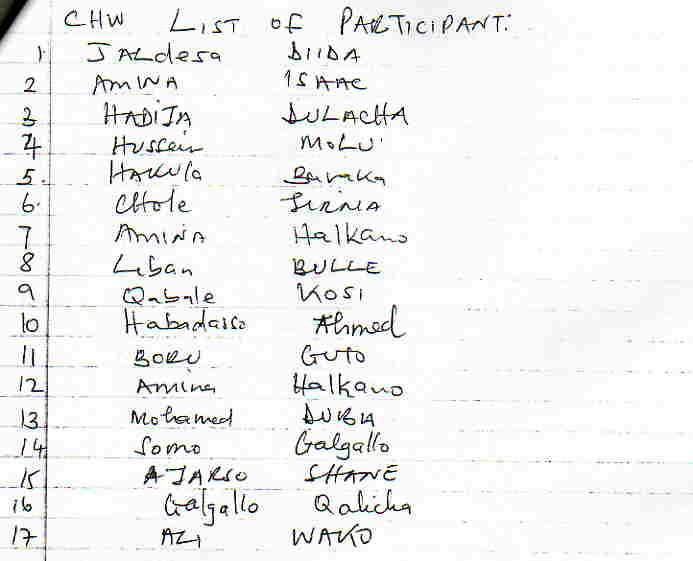 CHW LIST OF PARTICIPANT:
1 JALdesa DIIDA
2 AMINA ISAAC
3 HADIJA DULACHA
4 Hussein MOLU
5. HAKULa Buraka
6. CHole
7 AMINA Halkano
8 Liban BULLE
9 Qabale KOSI
10 Habadaiso Ahmed
11 BORU GUTO
12 Amina Halkano
13 Mohamed DUBA
14 Somo Galgallo
15 AJARSO SHANE
16 Galgallo Qalicha
17 ALI WAKO